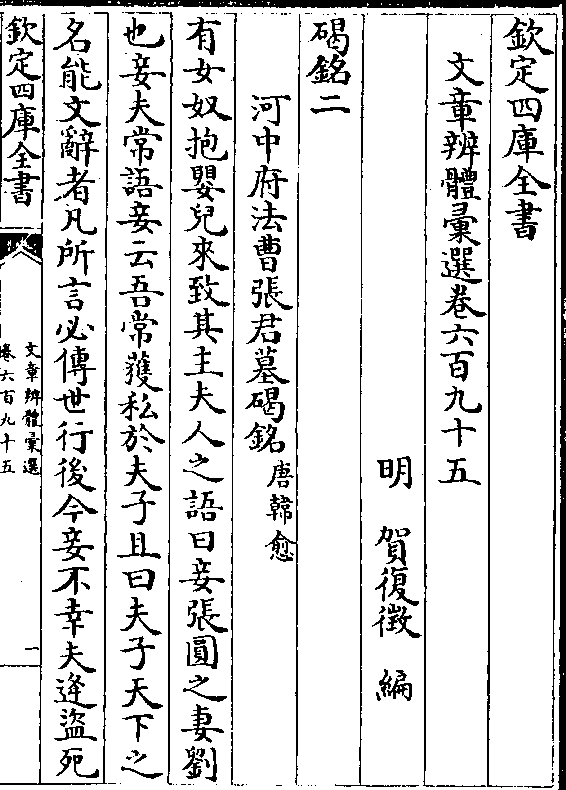 欽定四庫全書
文章辨體彚選卷六百九十五
明 賀復徵 編
碣銘二
河中府法曹張君墓碣銘 唐韓愈
有女奴抱嬰兒來致其主夫人之語曰妾張圓之妻劉
也妾夫常語妾云吾常獲私於夫子且曰夫子天下之
名能文辭者凡所言必傳世行後今妾不幸夫逢盜死
欽定四庫全書
文章辨體彚選
卷六百九十五
一